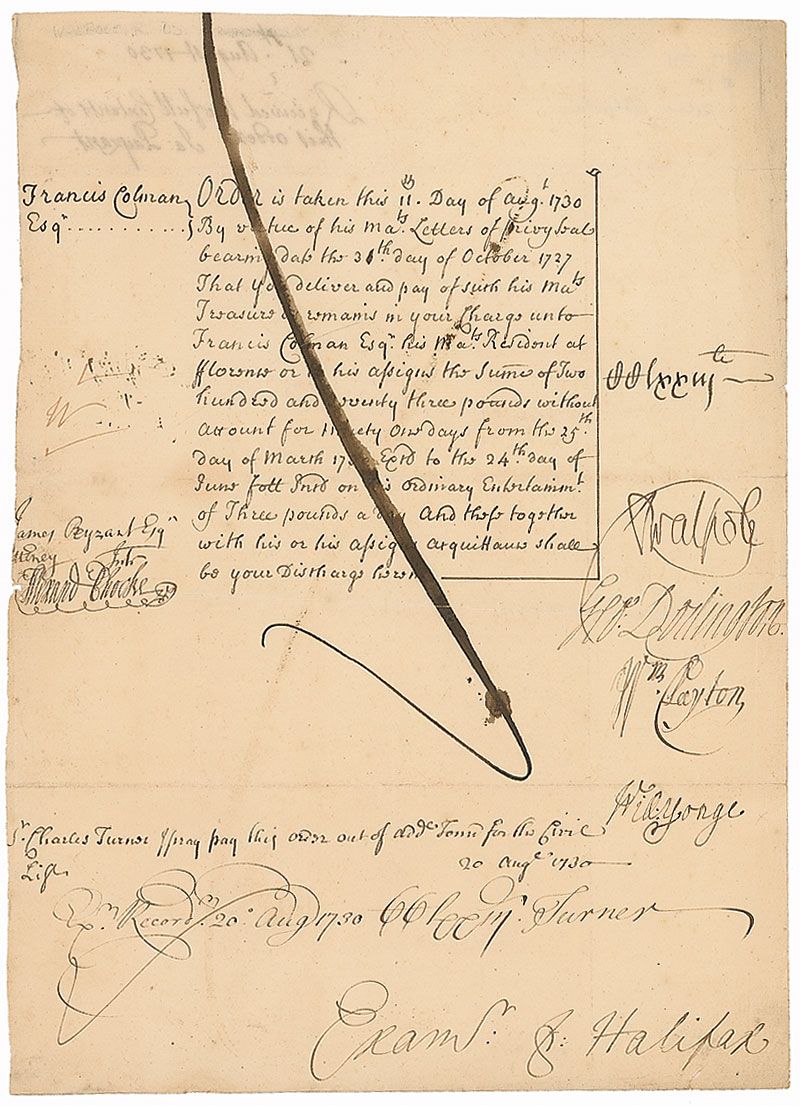 Francis Colman
Esqr
Order is taken this 11th. Day of Augt. 1730
By virtue of his Mats. Letters of Privy Seal
bearing date the 31th day of October 1727
That you deliver and pay of such his Mats
Treasure as remains in your Charge unto
Francis Colman Esqr. his Mats. Resident at
fflorence or to his assigns the Sume of Two
hundred and seventy three pounds without
account for Ninety One days from the 25th
day of March 17 Extd to the 24th. day of
June foll Intd on his ordinary Entertainmt.
of Three pounds a day And these together
with his or his assigns acquittance shall
be your Discharge herein
CClxxiijli
James
Esqr
Edward Chocke
RWalpole
Geo. Dodington
Wm. Clayton
Will. Yonge
Sr. Charles Turner I pray pay this order out of for the Civil
List
20 Augt. 1730
Exr. Recordm. 20o Aug 1730 CClxxiij. Turner
Examr. J: Halifax